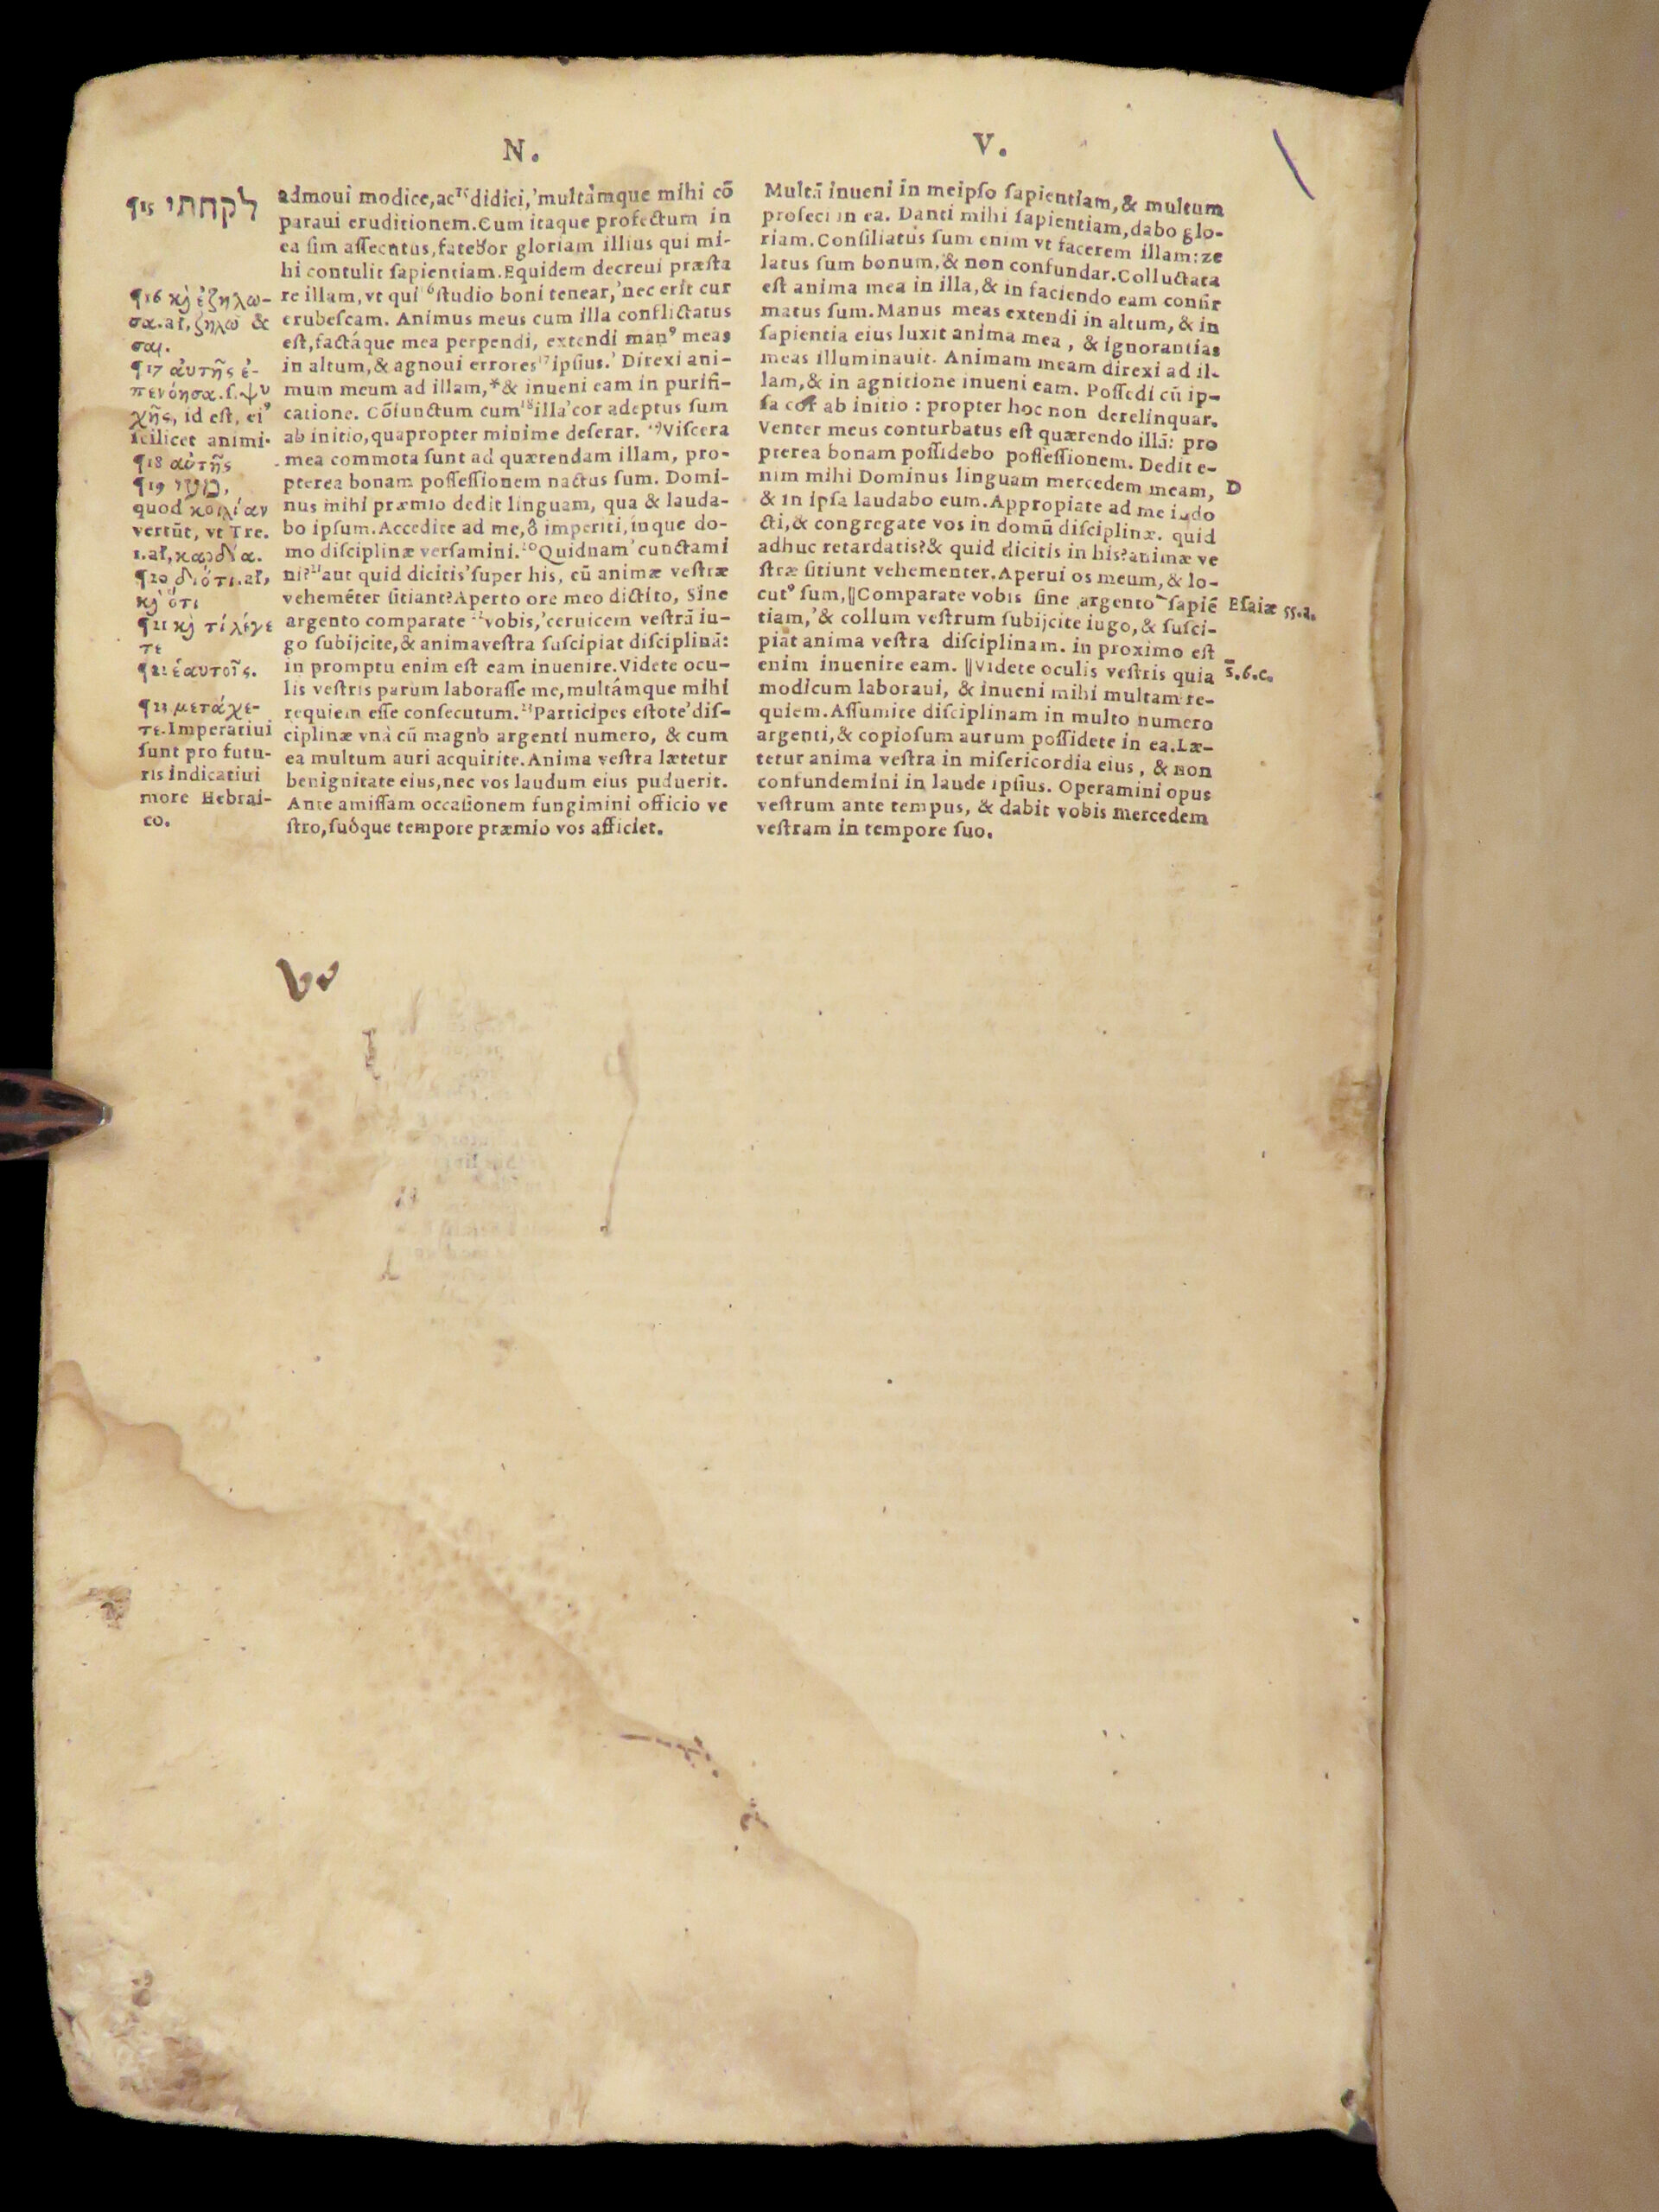 N.
¶15 לקחתי
¶16 κỳ ἐζηλω-
σα.al, ζηλῶ &
σαι.
¶17 αὐτῆς ἐ-
πενόησα.ſ.ψυ
χῆς, id eſt, ei⁹
ſcilicet animi.
¶18 αὐτῆς
¶19 מעי,
quod κοιλίαν
vertūt, vt Tre.
1.al, καρδία.
¶20 διότι.al,
κỳ ὅτι
¶21 κỳ τί λέγε
τε
¶22 ἑαυτοῖς.
¶23 μετάχε-
τε.Imperatiui
ſunt pro futu-
ris indicatiui
more Hebrai-
co.
admoui modice,ac¹⁵didici,'multámque mihi cō
paraui eruditionem.Cum itaque profectum in
ea ſim aſſecutus,fatebor gloriam illius qui mi-
hi contulit ſapientiam.Equidem decreui præſta
re illam,vt qui ⁶ſtudio boni tenear,'nec erit cur
erubeſcam. Animus meus cum illa conflictatus
eſt,factáque mea perpendi, extendi man⁹ meas
in altum,& agnoui errores¹⁷ipſius.' Direxi ani-
mum meum ad illam,*& inueni eam in purifi-
catione. Cōiunctum cum¹⁸illa'cor adeptus ſum
ab initio,quapropter minime deſerar. ¹⁹Viſcera
mea commota ſunt ad quærendam illam, pro-
pterea bonam poſſeſſionem nactus ſum. Domi-
nus mihi præmio dedit linguam, qua & lauda-
bo ipſum.Accedite ad me,ô imperiti,inque do-
mo diſciplinæ verſamini.²⁰Quidnam'cunctami
ni?²¹aut quid dicitis'ſuper his, cū animæ veſtræ
veheméter ſitiant?Aperto ore meo dictito, Sine
argento comparate ²²vobis,'ceruicem veſtrā iu-
go ſubijcite,& animaveſtra ſuſcipiat diſciplinā:
in promptu enim eſt eam inuenire.Videte ocu-
lis veſtris parum laboraſſe me,multámque mihi
requiem eſſe conſecutum.²³Participes eſtote'diſ-
ciplinæ vnà cū magno argenti numero, & cum
ea multum auri acquirite.Anima veſtra lætetur
benignitate eius,nec vos laudum eius puduerit.
Ante amiſſam occaſionem fungimini officio ve
ſtro,ſuóque tempore præmio vos afficiet.
V.
Multā inueni in meipſo ſapientiam,& multum
profeci in ea. Danti mihi ſapientiam,dabo glo-
riam.Conſiliatus ſum enim vt facerem illam:ze
latus ſum bonum,& non confundar.Colluctata
eſt anima mea in illa,& in faciendo eam confir
matus ſum.Manus meas extendi in altum,& in
ſapientia eius luxit anima mea, & ignorantias
meas illuminauit. Animam meam direxi ad il-
lam,& in agnitione inueni eam. Poſſedi cū ip-
ſa cor ab initio : propter hoc non derelinquar.
Venter meus conturbatus eſt quærendo illā: pro
pterea bonam poſſidebo poſſeſſionem. Dedit e-
nim mihi Dominus linguam mercedem meam,
& in ipſa laudabo eum.Appropiate ad me indo
cti,& congregate vos in domū diſciplinæ. quid
adhuc retardatis?& quid dicitis in his?animæ ve
ſtræ ſitiunt vehementer.Aperui os meum,& lo-
cut⁹ ſum,‖Comparate vobis ſine argento ſapiē
tiam,'& collum veſtrum ſubijcite iugo,& ſuſci-
piat anima veſtra diſciplinam. in proximo eſt
enim inuenire eam. ‖Videte oculis veſtris quia
modicum laboraui, & inueni mihi multam re-
quiem.Aſſumite diſciplinam in multo numero
argenti,& copioſum aurum poſſidete in ea.Læ-
tetur anima veſtra in miſericordia eius, & non
confundemini in laude ipſius. Operamini opus
veſtrum ante tempus, & dabit vobis mercedem
veſtram in tempore ſuo.
D
Eſaiæ 55.a.
s̄.6.c.